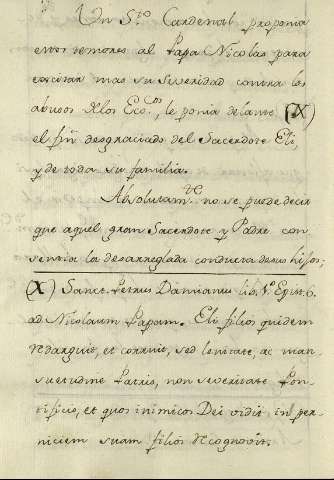 Un S.to Cardenal proponia
estos temores al Papa Nicolas para
excitar mas su severidad contra los
abusos de los Ecc.cos, le ponia delante (X)
el fin desgraciado del Sacerdote Eli,
y de toda su familia.
Absolutam.te no se puede decir
que aquel gran Sacerdote y Padre con
sentia la desarreglada conducta de sus hijos;
(X) Sanct. Petrus Damianus lib. 1.o Epist. 6.
ad Nicolaum Papam. Eli filios quidem
redarguit, et corruit, sed lenitate, ac man
suetudine Patris, non severitate Pon
tificio, et quos inimicos Dei vidit in per
niciem suam filios recognovit.